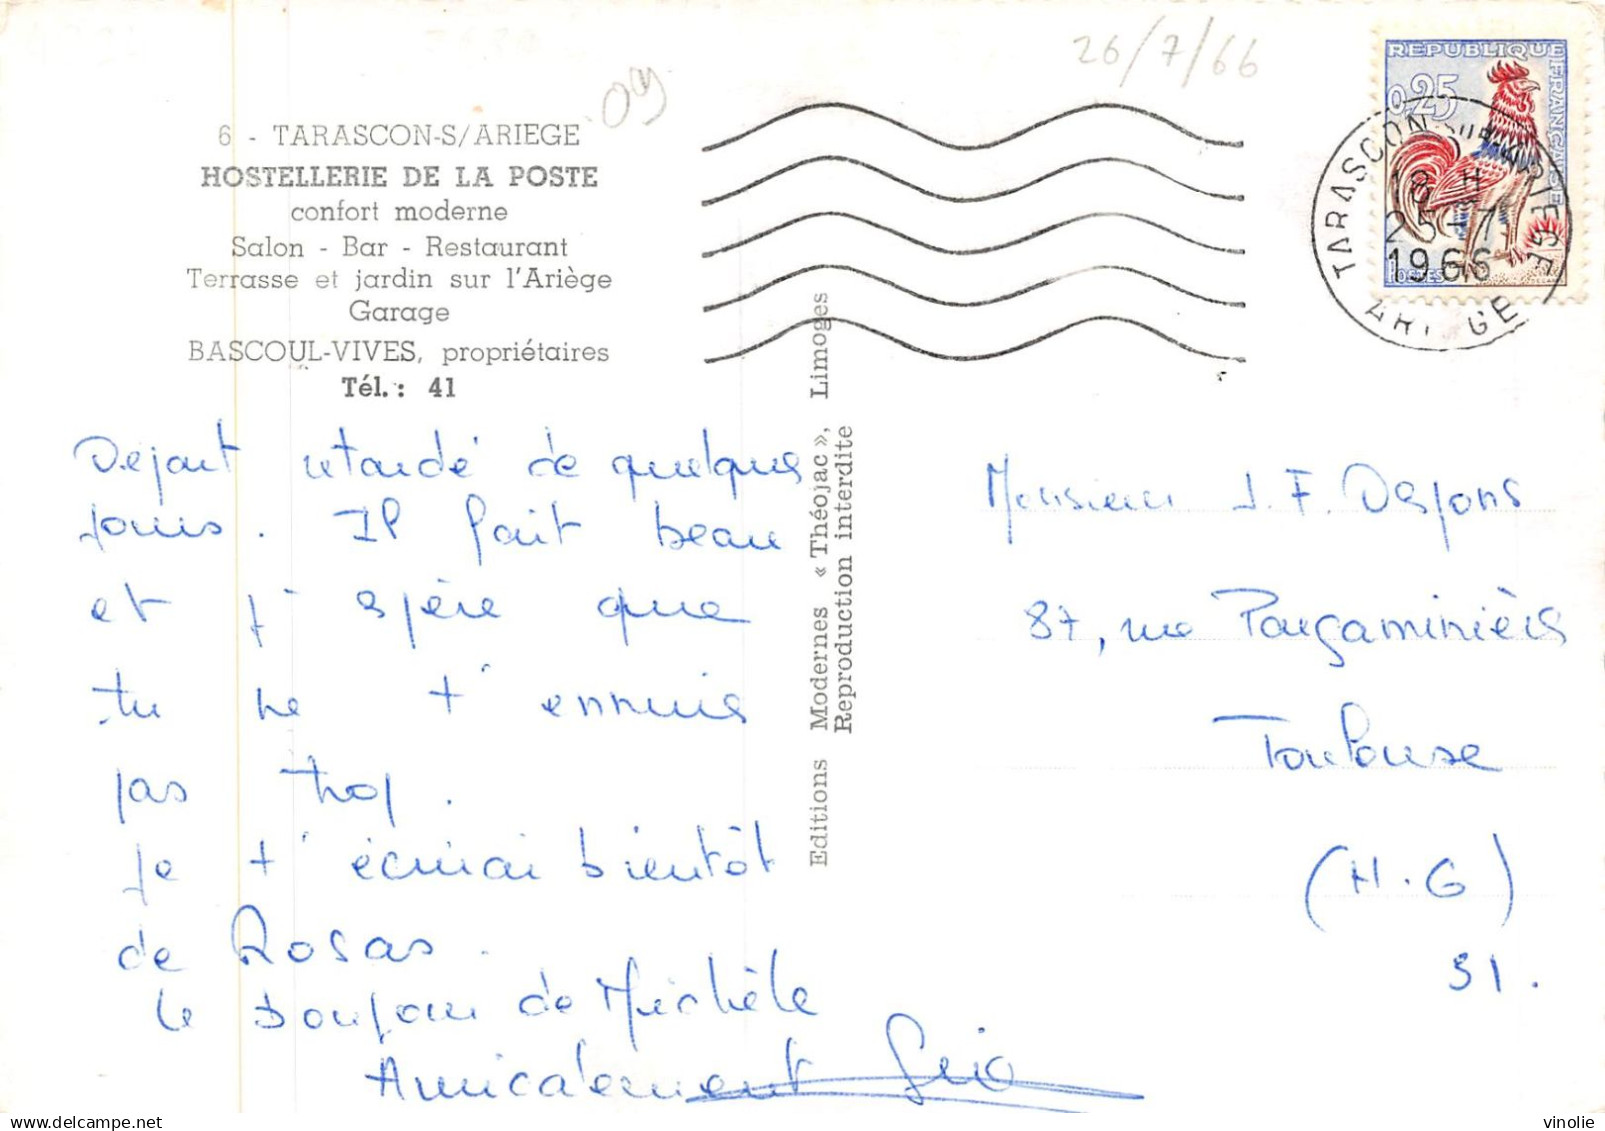 26/7/66
09
6 - TARASCON-S/ARIEGE
HOSTELLERIE DE LA POSTE
confort moderne
Salon - Bar - Restaurant
Terrasse et jardin sur l'Ariège
Garage
BASCOUL-VIVES, propriétaires
Tél. : 41
REPUBLIQUE FRANÇAISE
0,25
POSTES
TARASCON-SUR-ARIEGE
18 H
25-7
1966
ARIEGE
Départ retardé de quelques
jours. Il fait beau
et j'espère que
tu ne t'ennuis
pas trop.
Je t'écrirai bientôt
de Rosas.
le bonjour de Michèle
Amicalement
Editions Modernes « Théojac », Limoges
Reproduction interdite
Monsieur J. F. Dejons
87, rue Pargaminières
Toulouse
(H.G)
31.
vinolie